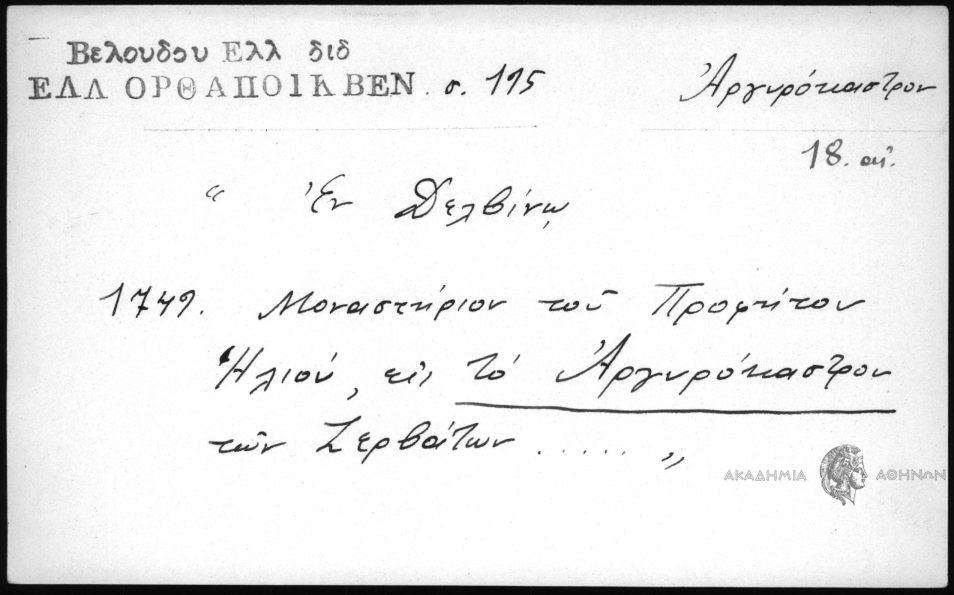 Βελουδου Ελλ διδ
ΕΛΛ ΟΡΘ ΑΠΟΙΚ ΒΕΝ. σ. 195 Ἀργυρόκαστρον
18. αἰ.
“ Ἐν Δελβίνῳ
1749. Μοναστήριον τοῦ Προφήτου
Ἠλιού, εἰς τό Ἀργυρόκαστρον
τῶν Ζερβάτων ...... „
ΑΚΑΔΗΜΙΑ ΑΘΗΝΩΝ